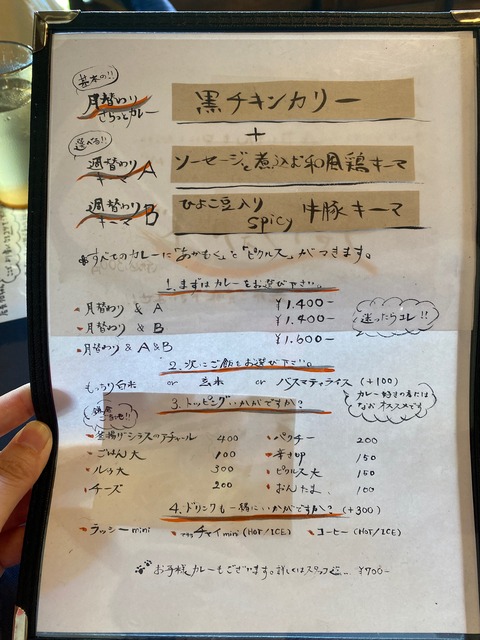 基本の!!
月替わり
さらっとカレー
黒チキンカリー
+
選べる!!
週替わり
キーマ A
ソーセージと煮込み和風鶏キーマ
週替わり
キーマ B
ひよこ豆入り
spicy 牛豚キーマ
すべてのカレーに「あかもく」と「ピクルス」がつきます。
1. まずはカレーをお選び下さい。
月替わり & A ¥1.400-
月替わり & B ¥1.400-
月替わり & A & B ¥1.600-
迷ったらコレ!!
2. 次にご飯をお選び下さい。
もっちり白米 or 玄米 or バスマティライス (+100)
カレー好きの方には
なおオススメです
3. トッピングいかがですか?
鎌倉
釜揚げシラスのアチャール 400
ごはん大 100
ルゥ大 300
チーズ 200
パクチー 200
辛さUP 150
ピクルス大 150
おんたま 100
4. ドリンクも一緒にいかがですか? (+300)
ラッシーmini
チャイmini (HOT/ICE)
コーヒー (HOT/ICE)
お子様カレーもございます。詳しくはスタッフに... ¥700-